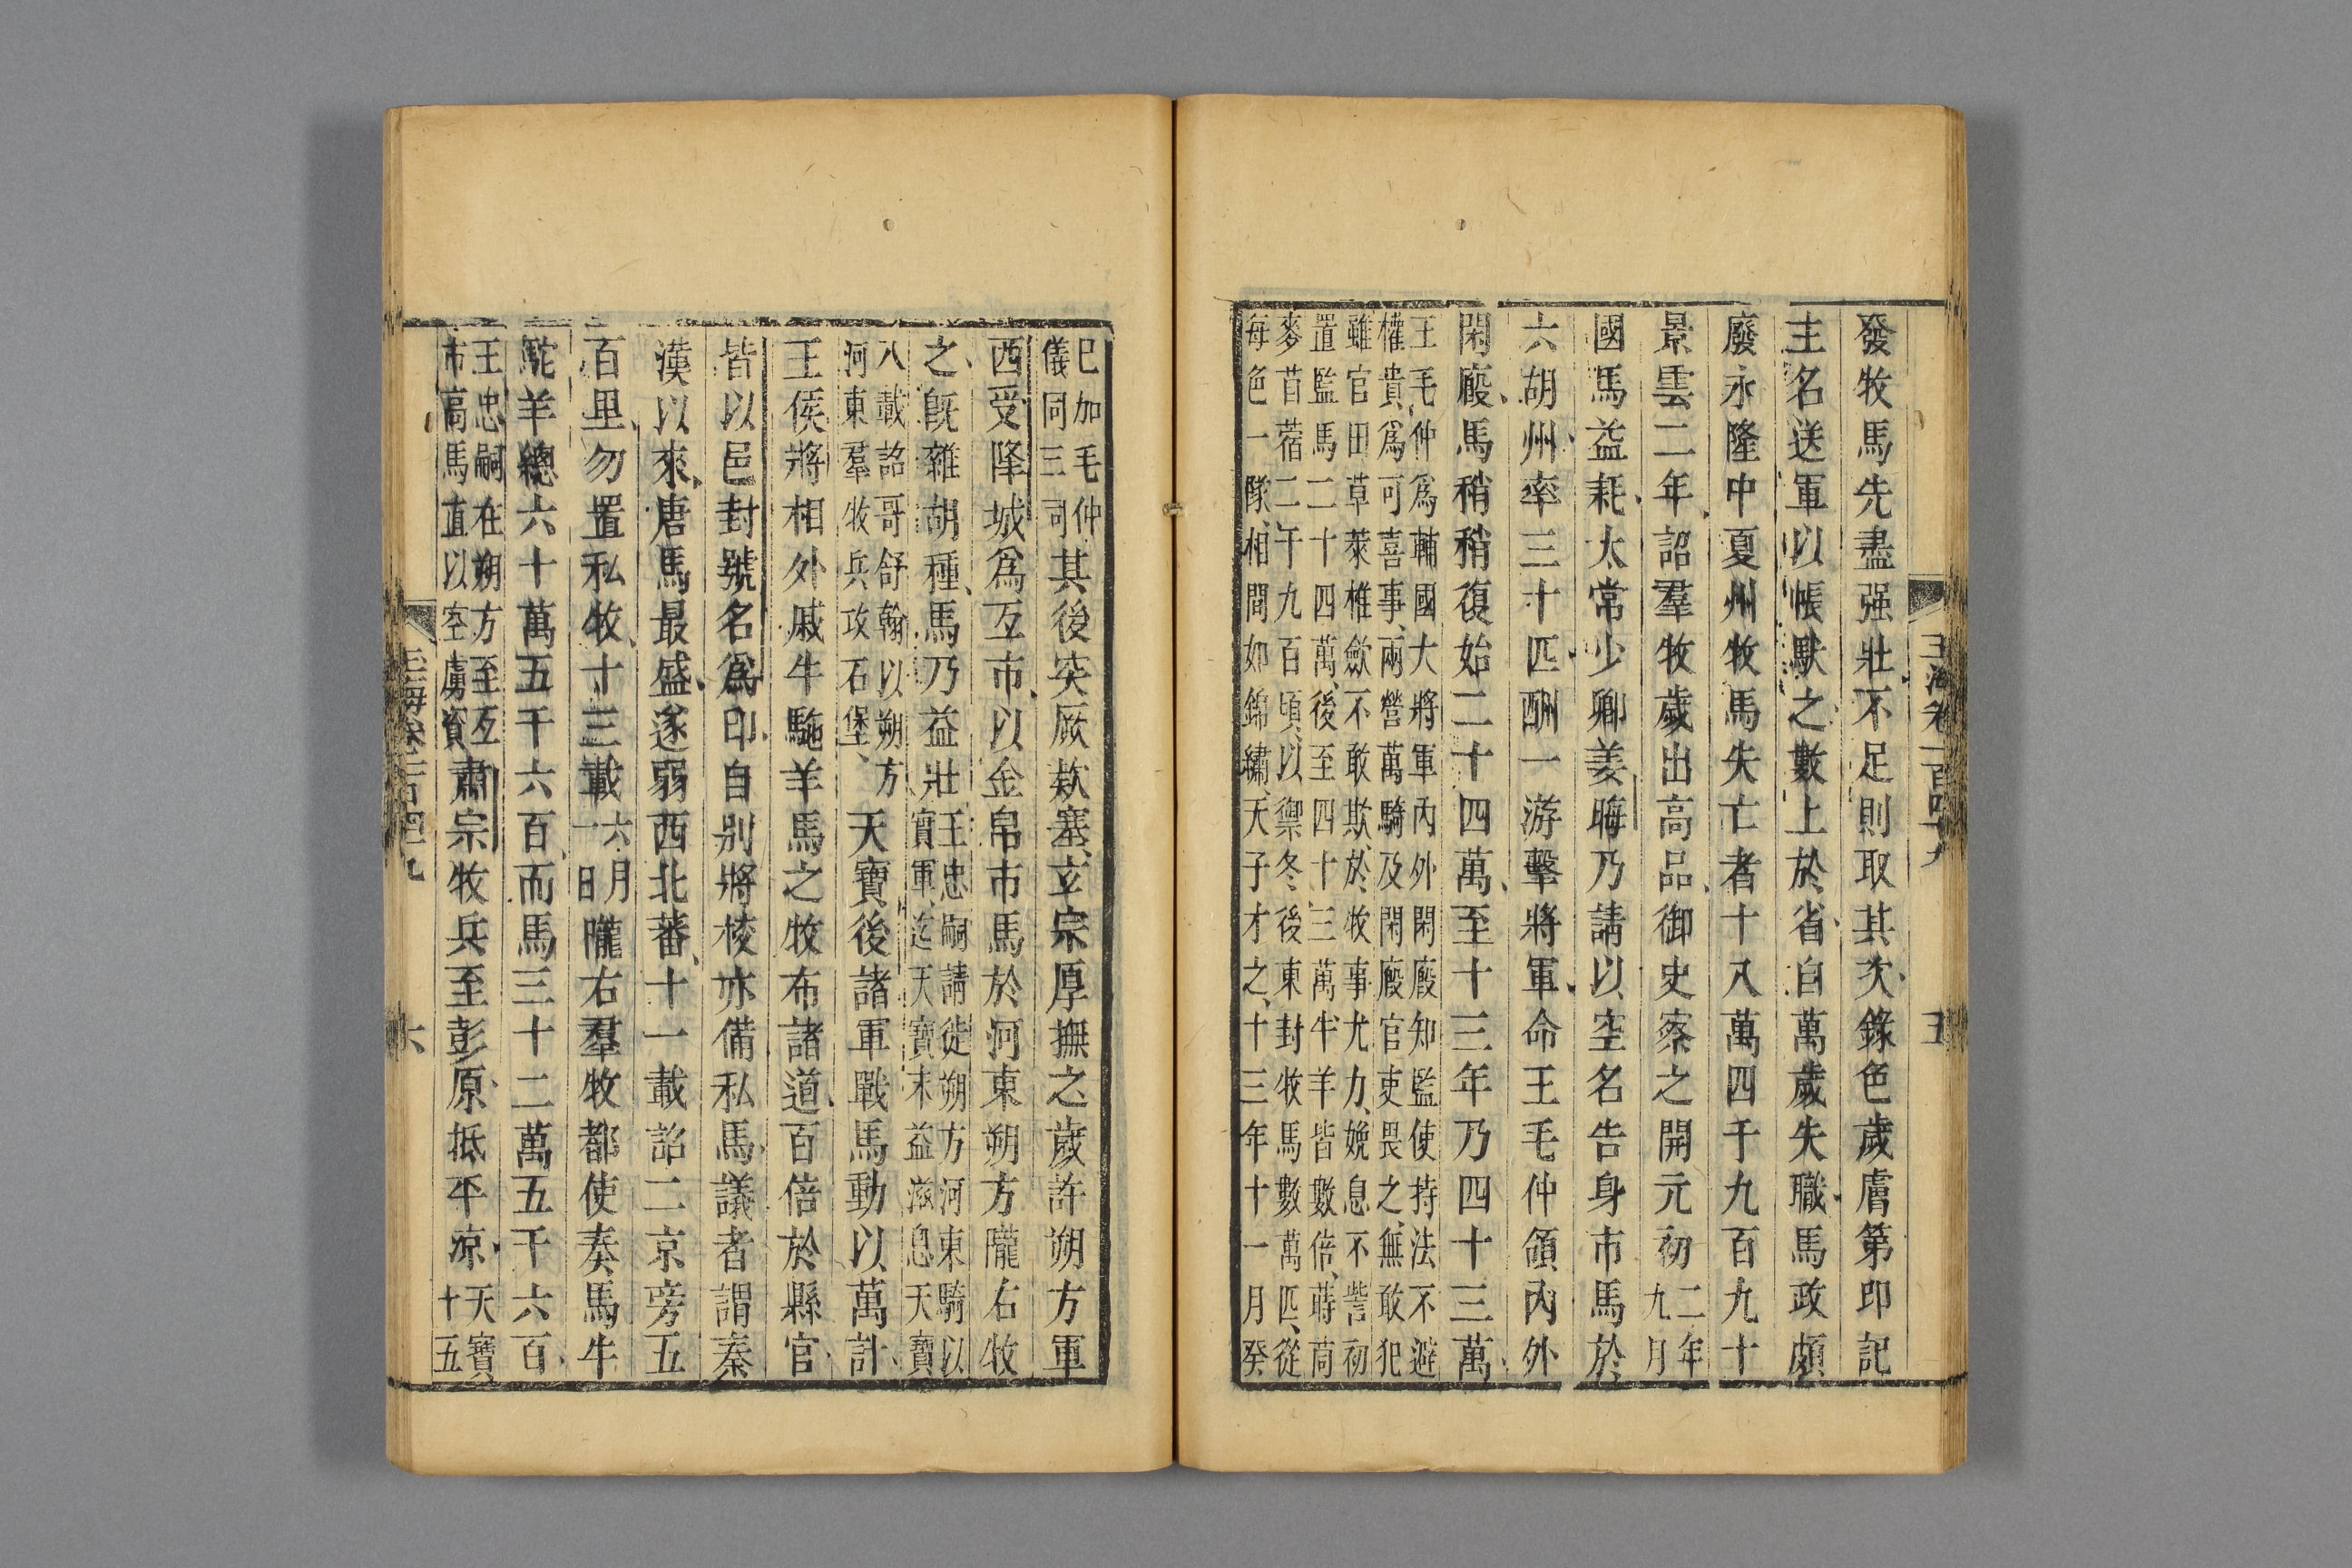 玉海卷一百四十九
五
發牧馬先盡强壯不足則取其次錄色歲膚第印記
主名送軍以帳馱之數上於省自萬歲失職馬政頗
廢永隆中夏州牧馬失亡者十八萬四千九百九十
景雲二年詔羣牧歲出高品御史察之開元初二年九月
國馬益耗太常少卿姜晦乃請以空名告身市馬於
六胡州率三十匹酬一游擊將軍命王毛仲領內外
閑廄馬稍稍復始二十四萬至十三年乃四十三萬
王毛仲爲輔國大將軍內外閑廄知監使持法不避
權貴爲可喜事兩營萬騎及閑廄官吏畏之無敢犯
雖官田草萊樵斂不敢欺於牧事尤力娩息不訾初
置監馬二十四萬後至四十三萬牛羊皆數倍蒔茼
麥苜蓿二千九百頃以禦冬後東封牧馬數萬匹從
每色一隊相間如錦繡天子才之十三年十一月癸
巳加毛仲
儀同三司其後突厥款塞玄宗厚撫之歲許朔方軍
西受降城爲互市以金帛市馬於河東朔方隴右牧
之旣雜胡種馬乃益壯王忠嗣請徙朔方河東騎以
寶軍迄天寶末益滋息天寶
八載詔哥舒翰以朔方
河東羣牧兵攻石堡天寶後諸軍戰馬動以萬計
王侯將相外戚牛駞羊馬之牧布諸道百倍於縣官
皆以邑封號名爲印自別將校亦備私馬議者謂秦
漢以來唐馬最盛遂弱西北蕃十一載詔二京旁五
百里勿置私牧十三載六月一日隴右羣牧都使奏馬牛
駝羊總六十萬五千六百而馬三十二萬五千六百
王忠嗣在朔方至互
市高馬直以空虜資肅宗牧兵至彭原抵平涼天寶
十五
玉海卷一百四九
六